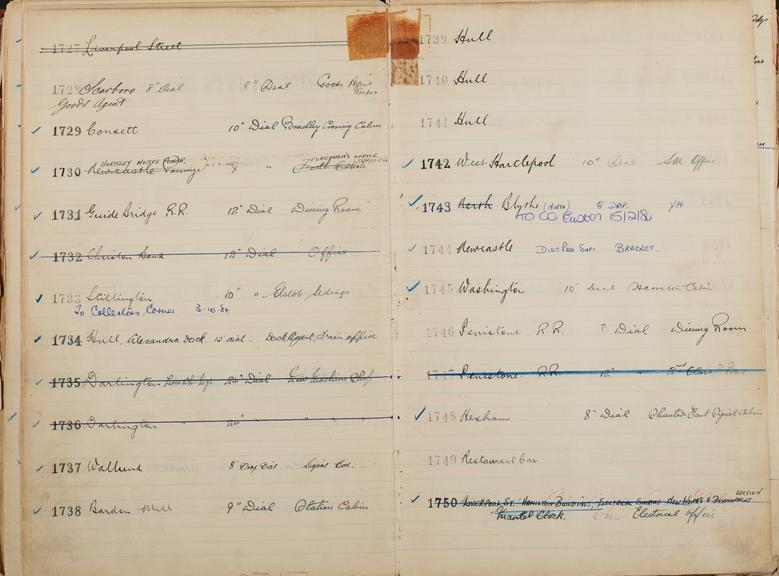 1727 Liverpool Street
1728 Scarboro 8" Dial 8" Dial Goods
Goods Agent
1729 Consett 10" Dial Bradley Crossing Cabin
1730 Newcastle 8 "
1731 Guide Bridge R.R. 12" Dial Dining Room
1732 Christon Bank 12" Dial Office
1733 Stillington 10" " Elstob Sidings
To Collectors Corner 3-10-84
1734 Hull, Alexandra Dock. 12 dial. Dock Agent, Train office
1735 Darlington 24" Dial New Machine Shop
1736 Darlington " 24" " "
1737 Wallsend 8" Drop Dial Signal Box.
1738 Bardon Mill 9" Dial Station Cabin
1739 Hull
1740 Hull
1741 Hull
1742 West Hartlepool 10" Dial S.M. Office
1743 North Blyth (North) 8" Drp. Y.M.
TO CO Euston 15/2/84
1744 Newcastle Dist. Pass Supt. Bracket.
1745 Washington 10" Dial Cabin
1746 Penistone R.R. ? Dial Dining Room
1747 Penistone R.R. 12" " 2nd Class
1748 Hexham 8" Dial East Signal Cabin
1749 Restaurant Car
1750 Liverpool St. Hamilton Building, Electrical New Works & Development Section
Mantel Clock. Electrical office